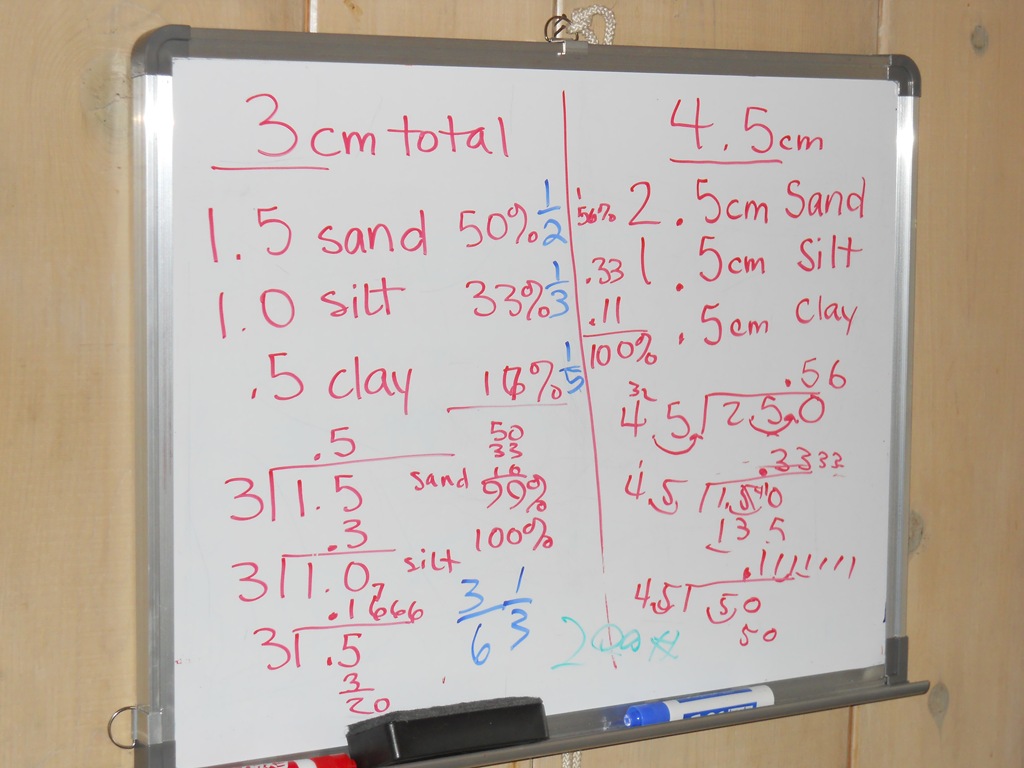 3 cm total
1.5 sand 50% 1/2
1.0 silt 33% 1/3
.5 clay 16% 1/5
.5
3 1.5
sand
50
33
16
99%
100%
.3
3 1.0
silt
.1666
3 .5
3
20
3/6 1/3
4.5cm
56% 2.5cm Sand
.33 1.5cm Silt
.11 .5cm Clay
100%
.56
32
4.5 2.5.0
.3333
4.5 1.5
13 5
.1111111
4.5 .50
50